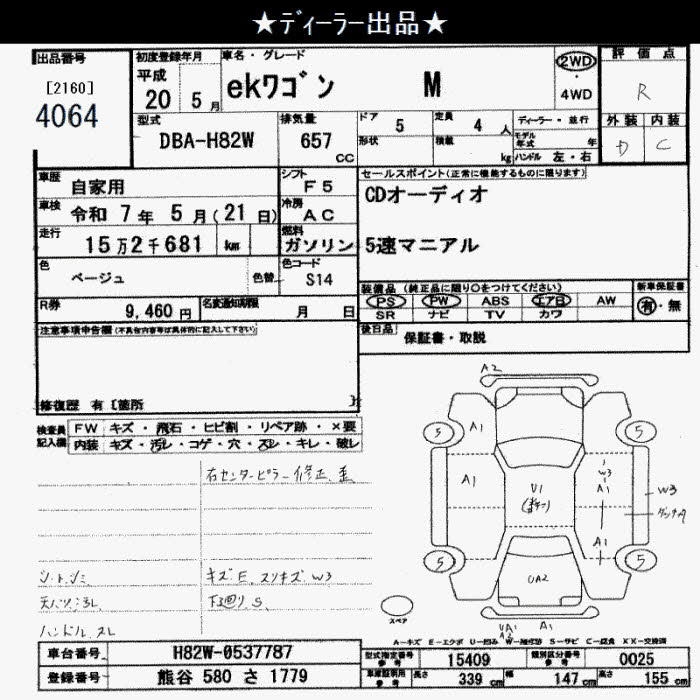 ★ディーラー出品★
出品番号
[2160]
4064
初度登録年月
平成
20 5月
車名・グレード
ekワゴン M
2WD
・
4WD
評価点
R
外装 内装
D C
型式
DBA-H82W
排気量
657
cc
ドア 5
形状
定員 4人
積載 kg
ディーラー・並行
モデル年式 年
ハンドル 左・右
車歴
自家用
シフト
F5
車検
令和 7年 5月(21日)
冷房
AC
走行
15万2千681 km
燃料
ガソリン
色
ベージュ
色替
色コード
S14
R券
9,460円
名変通知期限
月 日
セールスポイント(正常に機能するものに限ります)
CDオーディオ
5速マニアル
装備品(純正品に限り○をつけてください)
PS PW ABS エアB AW
SR ナビ TV カワ
新車保証書
有・無
後日品
保証書・取説
注意事項申告欄(不具合内容等は具体的に記入して下さい)
修復歴 有〔箇所 〕
検査員
記入欄
FW キズ・飛石・ヒビ割・リペア跡・×要
内装 キズ・汚レ・コゲ・穴・スレ・キレ・破レ
右センターピラー修正、歪
シートシミ
天バリ汚レ
ハンドルスレ
キズ、E、スリキズ W3
下廻り S
A2
5
A1
A1
U1
UA2
W3
A1
A1
5
W3
5
5
スペア
UA1
A2
A1
A-キズ E-エクボ U-凹み W-補修跡 S-サビ C-腐食 XX-交換済
車台番号
H82W-0537787
登録番号
熊谷 580 さ 1779
型式指定番号
参考
15409
類別区分番号
参考
0025
車庫証明用
参考
長さ 339 cm
幅 147 cm
高さ 155 cm